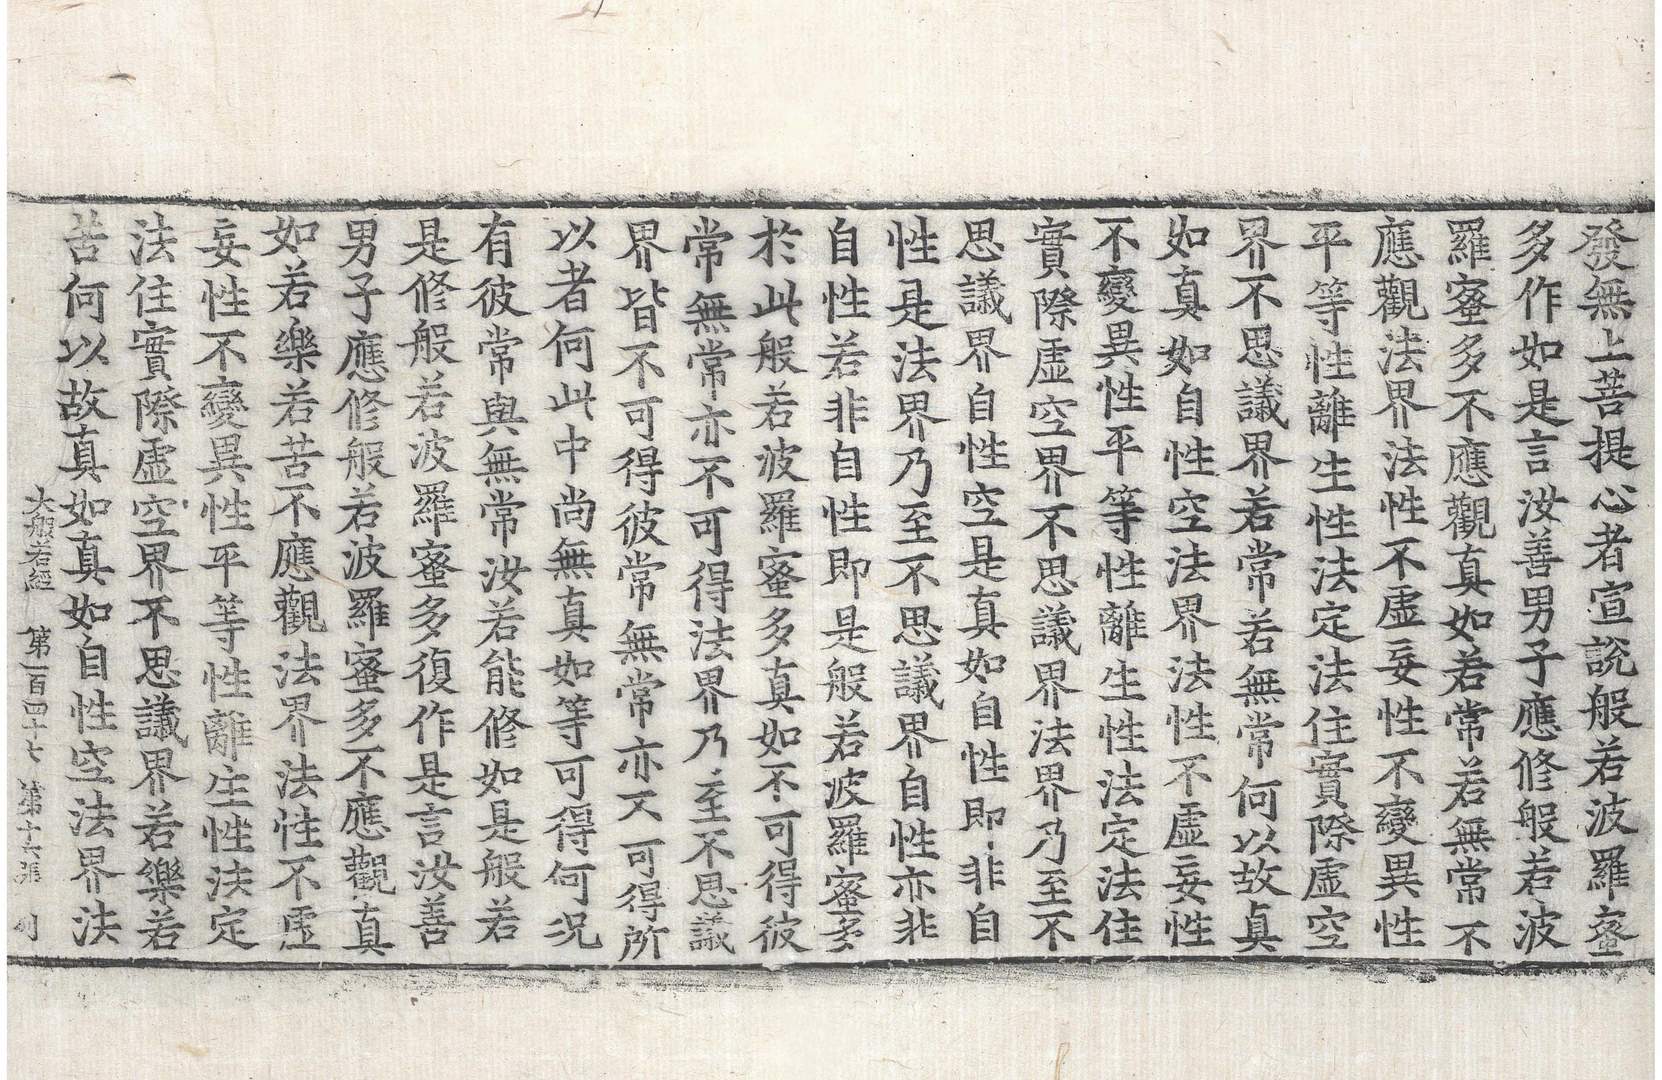 發無上菩提心者宣說般若波羅蜜
多作如是言汝善男子應修般若波
羅蜜多不應觀真如若常若無常不
應觀法界法性不虛妄性不變異性
平等性離生性法定法住實際虛空
界不思議界若常若無常何以故真
如真如自性空法界法性不虛妄性
不變異性平等性離生性法定法住
實際虛空界不思議界法界乃至不
思議界自性空是真如自性即非自
性是法界乃至不思議界自性亦非
自性若非自性即是般若波羅蜜多
於此般若波羅蜜多真如不可得彼
常無常亦不可得法界乃至不思議
界皆不可得彼常無常亦不可得所
以者何此中尚無真如等可得何況
有彼常與無常汝若能修如是般若
是修般若波羅蜜多復作是言汝善
男子應修般若波羅蜜多不應觀真
如若樂若苦不應觀法界法性不虛
妄性不變異性平等性離生性法定
法住實際虛空界不思議界若樂若
苦何以故真如真如自性空法界法
大般若經 第一百四十七 第十六張